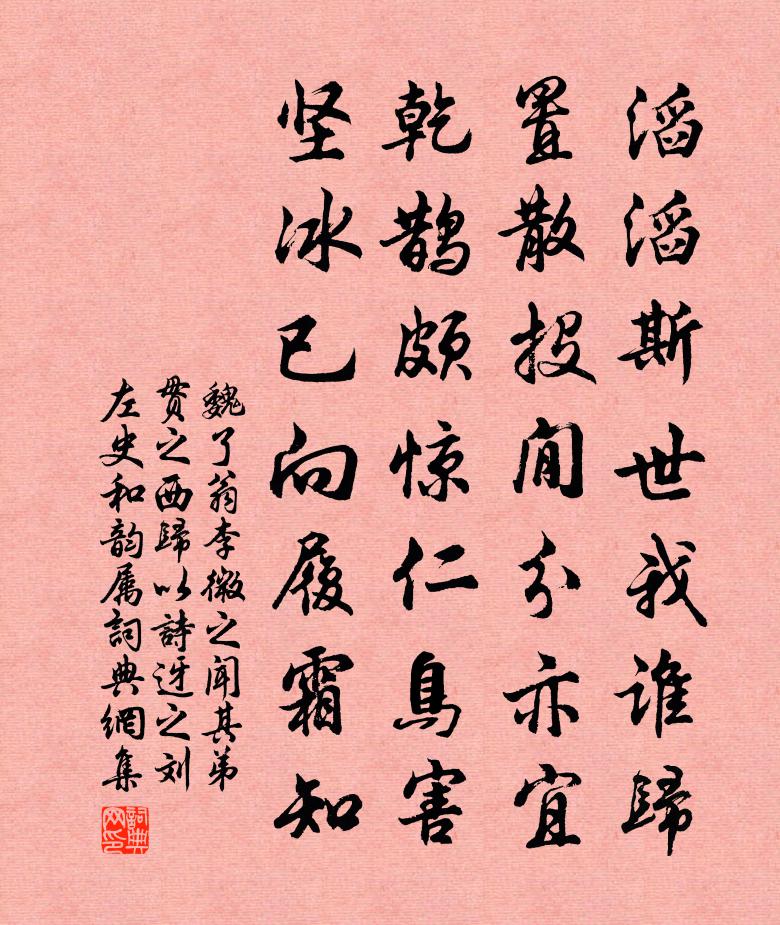 滔滔斯世我谁歸
置散投閒分亦宜
乾鹊頗惊仁鳥害
坚冰已向履霜知
魏了翁李微之闻其弟
贯之西歸以詩迓之刘
左史和韵属詞典網集
詞典网印